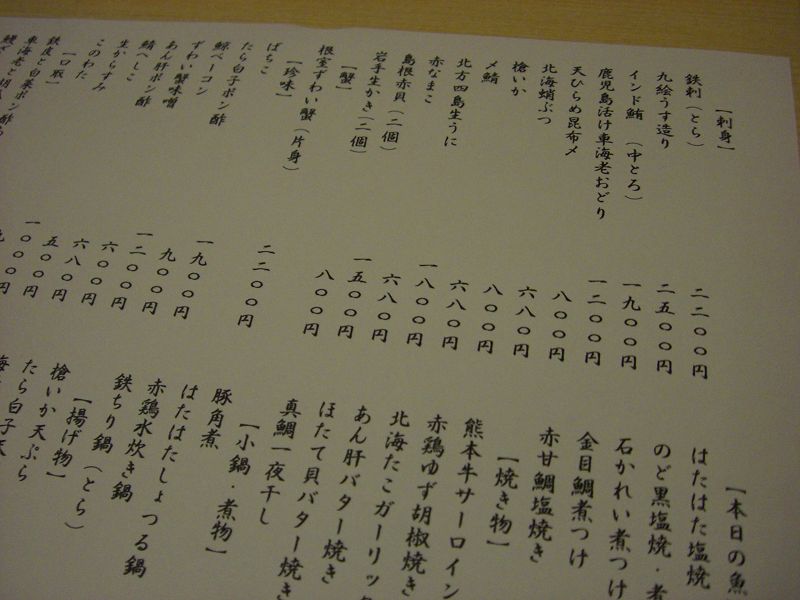 【刺身】
鉄刺(とら) 二二〇〇円
九絵うす造り 二五〇〇円
インド鮪 (中とろ) 一九〇〇円
鹿児島活け車海老おどり 一二〇〇円
天ひらめ昆布〆 八〇〇円
北海蛸ぶつ 六八〇円
槍いか 八〇〇円
〆鯖 六八〇円
北方四島生うに 一八〇〇円
赤なまこ 六八〇円
島根赤貝(二個) 一五〇〇円
岩手生かき(二個) 八〇〇円
【蟹】
根室ずわい蟹(片身) 二二〇〇円
【珍味】
ばちこ 一九〇〇円
たら白子ポン酢 九〇〇円
鯨ベーコン 一二〇〇円
ずわい蟹味噌 六〇〇円
あん肝ポン酢 六八〇円
鯖へしこ 五〇〇円
生からすみ 一〇〇〇円
このわた
【口取】
鉄皮と白菜ポン酢
車海老と胡瓜
鰻ざ
【本日の魚
はたはた塩焼
のど黒塩焼・煮
石かれい煮つけ
金目鯛煮つけ
赤甘鯛塩焼き
【焼き物】
熊本牛サーロイン
赤鶏ゆず胡椒焼き
北海たこガーリック
あん肝バター焼き
ほたて貝バター焼き
真鯛一夜干し
【小鍋・煮物】
豚角煮
はたはたしょつる鍋
赤鶏水炊き鍋
鉄ちり鍋(とら)
【揚げ物】
槍いか天ぷら
たら白子天